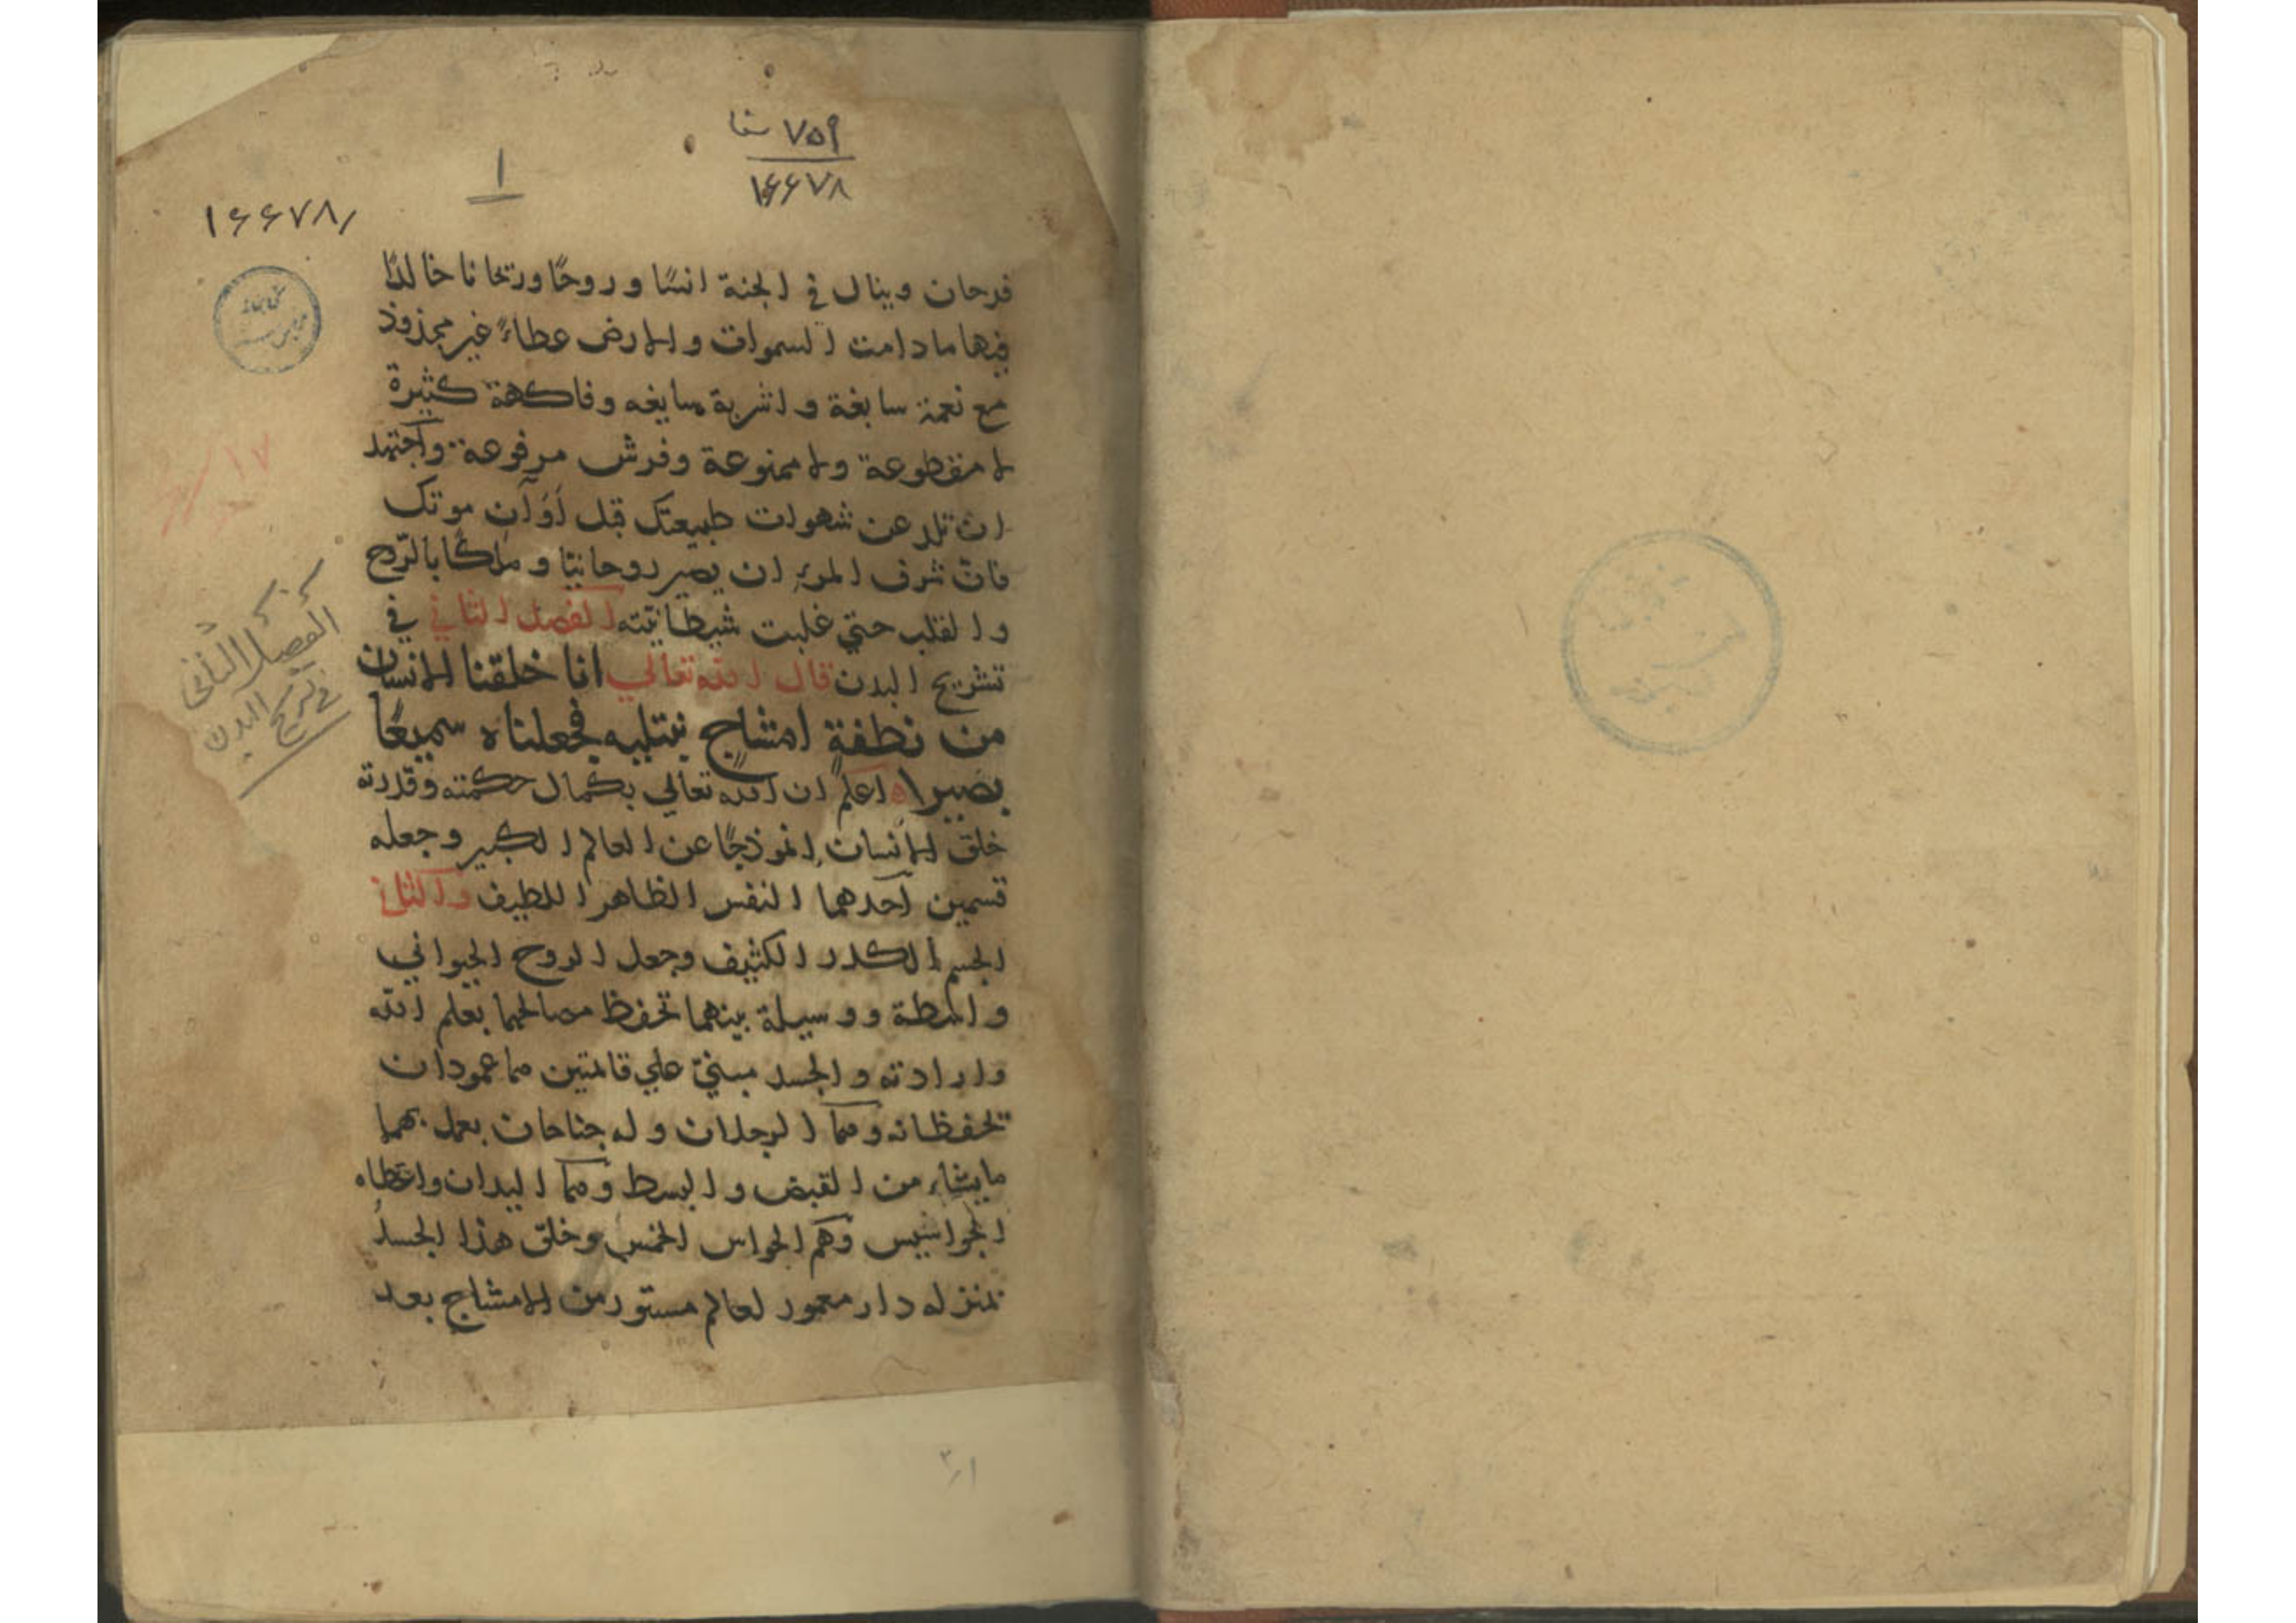 ٧٥٩
١۶۶٧٨
١
١۶۶٧٨
فرحان وينال في الجنة انسًا وروحًا وريحانا خالدًا
فيها مادامت السموات والارض عطاءً غير مجذوذ
مع نعمة سابغة واشربة سايغه وفاكهة كثيرة
لا مقطوعة ولا ممنوعة وفرش مرفوعة واجتهد
ان عن شهوات طبيعتك قبل أوان موتك
فانّ شرف المرء ان يصير روحانيّا وملكًا بالرّوح
والقلب حتي غلبت شيطانيّته الفصل الثاني في
تشريح البدن قال الله تعالي انا خلقنا الانسان
من نطفةٍ امشاجٍ نبتليه فجعلناه سميعًا
بصيرا اعلم ان الله تعالي بكمال حكمته وقدرته
خلق الانسان انموذجًا عن العالم الكبير وجعله
قسمين احدهما النفس الظاهر اللطيف والثاني
الجسم الكدر الكثيف وجعل الروح الحيواني
واسطة ووسيلة بينهما تحفظ مصالحها بعلم الله
وارادته والجسد مبنيّ علي قائمتين هما عمودان
تحفظانه وهما الرجلان وله جناحان يعمل بهما
مايشاء من القبض والبسط وهما اليدان واعطاه
الجواسيس وهم الحواس الخمس وخلق هذا الجسد
بمنزله دار معمور لعالم مستور من الامشاج بعد
الفصل الثاني
في تشريح البدن
١٧